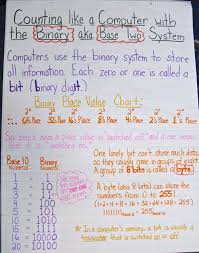 Counting like a Computer with
the Binary aka Base Two System
Computers use the binary system to store
all information. Each zero or one is called a
bit (binary digit.)
Binary Place Value Chart:
2⁵ 2⁴ 2³ 2² 2¹ 2⁰
32's Place 16's Place 8's Place 4's Place 2's Place 1's Place
"switched off"
Base 10 Numeral
Binary Numeral
1 = 1
2 = 10
3 = 11
4 = 100
5 = 101
10 = 1010
15 = 1111
16 = 10000
20 = 10100
One lonely bit can't store much data,
so they usually come in groups of eight.
A group of 8 bits is called a byte.
A byte (aka 8 bits) can store the
numbers from 0 to 255!
(1+2+4+8+16+32+64+128 = 255)
11111111 = 255
In a computer's memory, a bit is usually a
transistor that is switched on or off